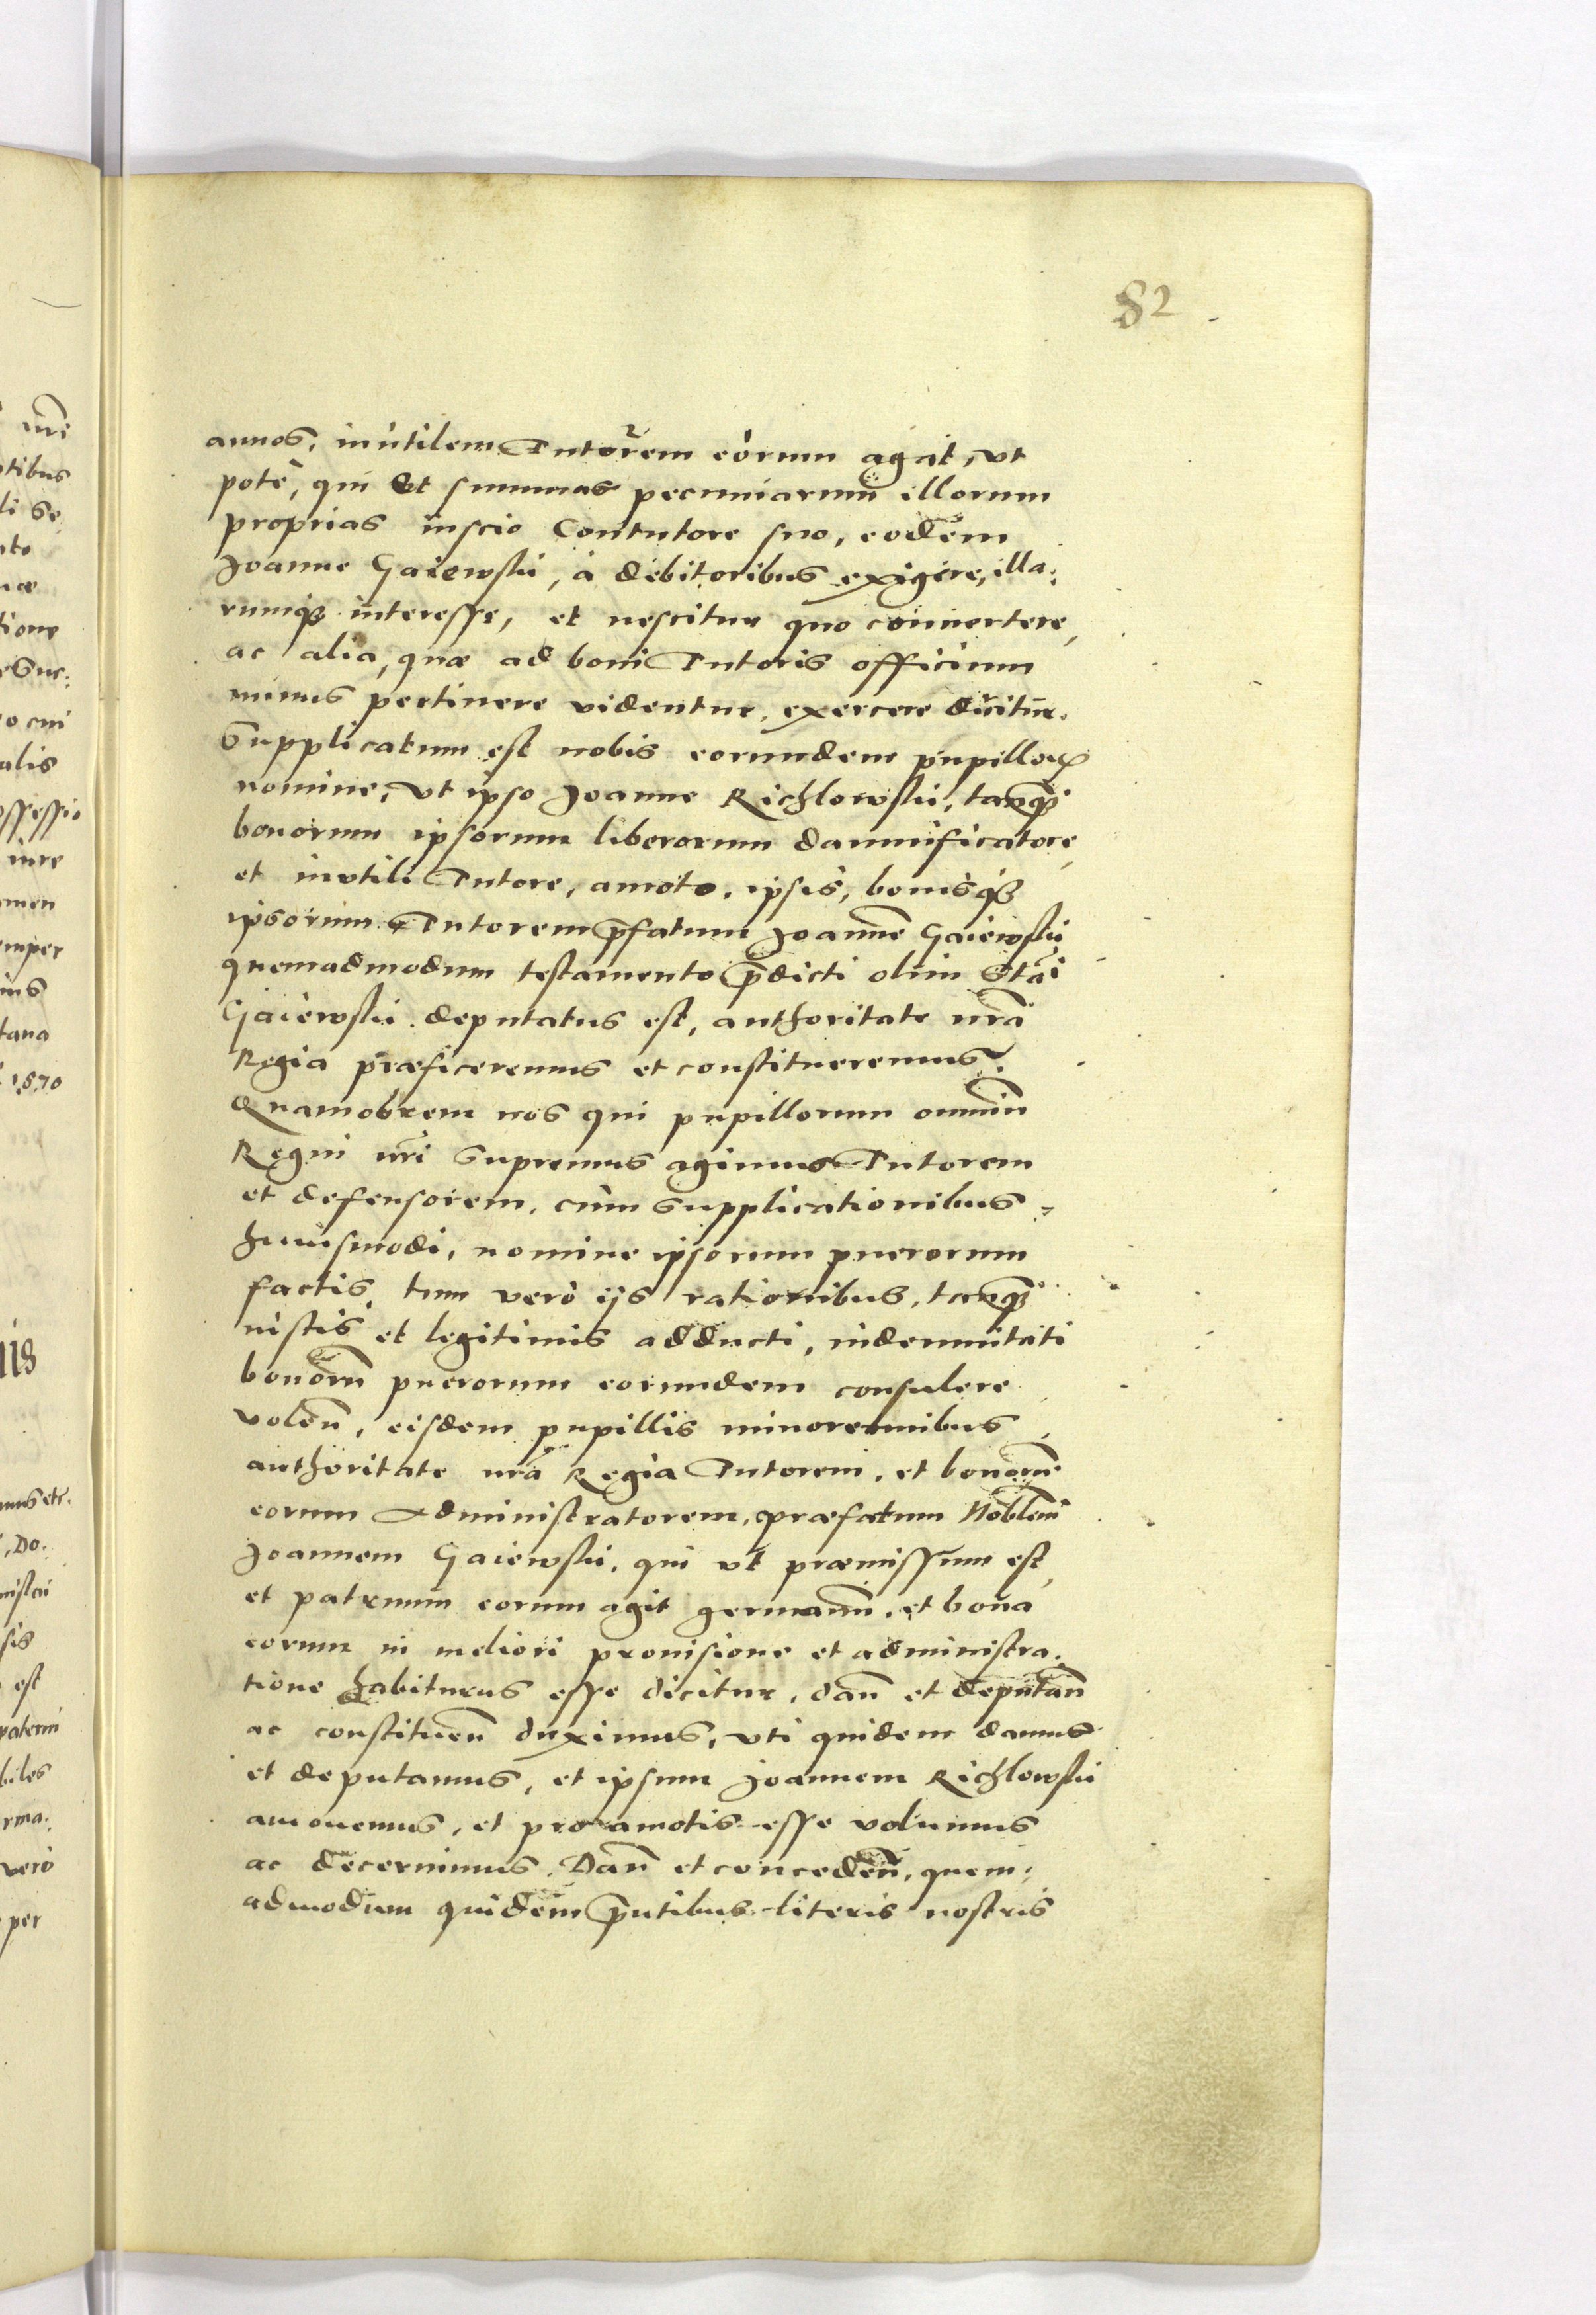 82
annos, inutilem Tutorem eorum agat, ut
pote, qui et summas pecuniarum illorum
proprias inscio Contutore suo, eodem
Joanne Gaiewski, à debitoribus exigere, illa:
rumq̃ interesse, et nescitur quo convertere,
ac alia, quæ ad boni Tutoris officium
minus pertinere videntur, exercere dicitur.
Supplicatum est nobis eorundem pupilloꝝ
nomine, ut ipso Joanne Richlowski, tanq̃
bonorum ipsorum liberorum damnificatore,
et inutili Tutore, amoto, ipsis, bonisq̃
ipsorum Tutorem p̃fatum Joannẽ Gaiewski
quemadmodum testamento p̃dicti olim Stãi
Gaiewski deputatus est, authoritate nr̃a
Regia præficeremus et constitueremus.
Quamobrem nos qui pupillorum omniũ
Regni nr̃i supremus agimus Tutorem
et defensorem, cum supplicationibus
huiusmodi, nomine ipsorum puerorum
factis, tum verò ijs rationibus, tanq̃
iustis et legitimis adducti, indemnitati
bonorũ puerorum eorundem consulere
volen̄, eisdem pupillis minorennibus
authoritate nr̃a Regia Tutorem, et bonorũ
eorum Administratorem, præfatum Noblem̃
Joannem Gaiewski, qui ut præmissum est,
et patruum eorum agit germanũ, et bona
eorum in meliori provisione et administra:
tione habiturus esse dicitur, dan̄ et deputan̄
ac constituen̄ duximus, uti quidem damus
et deputamus, et ipsum Joannem Richlowski
amovemus, et pro amotis esse volumus
ac decernimus. Dan̄ et conceden̄, quem:
admodum quidem p̃ntibus literis nostris